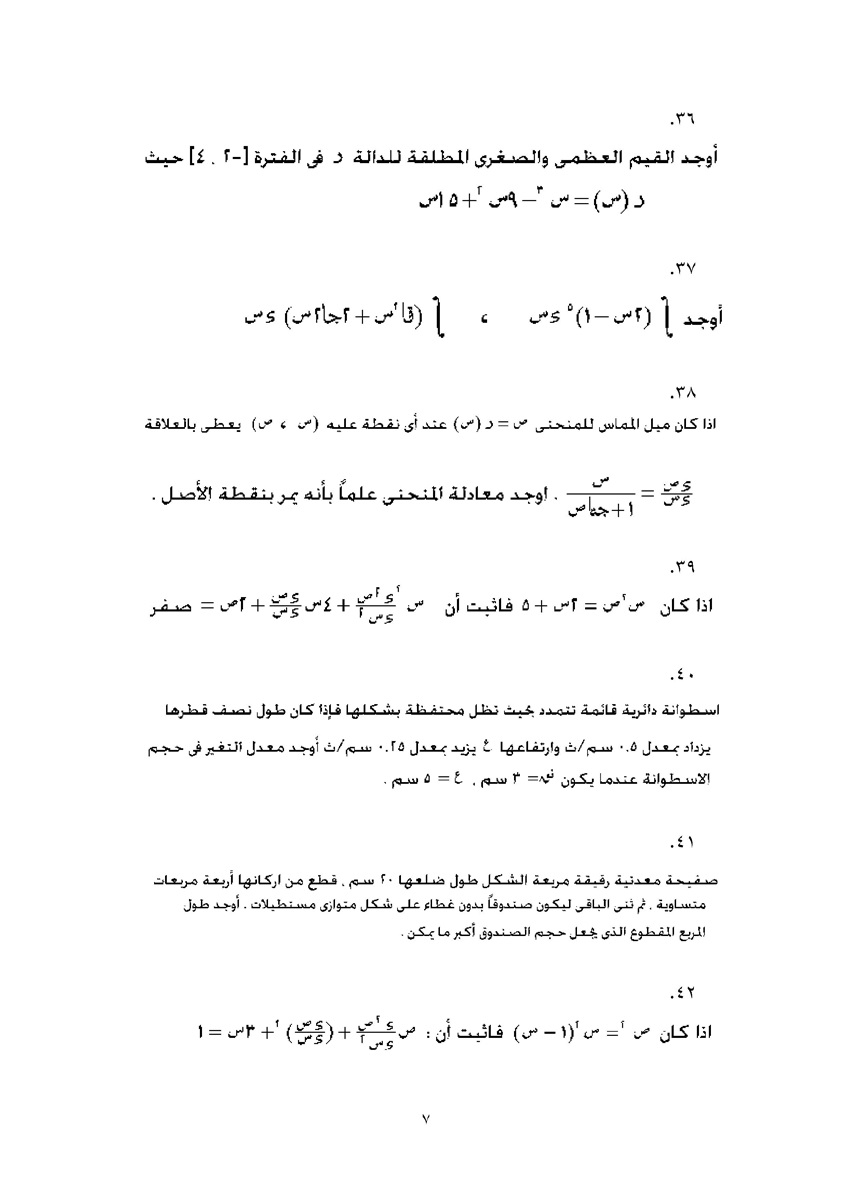 ٣٦.
أوجد القيم العظمى والصغرى المطلقة للدالة د فى الفترة [-٢ ، ٤] حيث
د (س) = س ٣ – ٩س ٢ + ١٥س
٣٧.
أوجد ∫ (٢س – ١) ٥ ءس ، ∫ (قا٢س + ٢جا٢س) ءس
٣٨.
اذا كان ميل المماس للمنحنى ص = د (س) عند أى نقطة عليه (س ، ص) يعطى بالعلاقة
ءص/ءس = س/(١+جتاص) . اوجد معادلة المنحنى علماً بأنه يمر بنقطة الأصل .
٣٩.
اذا كان س٢ص = ٢س + ٥ فاثبت أن س ء٢ص/ءس٢ + ٤س ءص/ءس + ٢ص = صفر
٤٠.
اسطوانة دائرية قائمة تتمدد بحيث تظل محتفظة بشكلها فإذا كان طول نصف قطرها
يزداد بمعدل ٠.٥ سم/ث وارتفاعها ع يزيد بمعدل ٠.٢٥ سم/ث أوجد معدل التغير فى حجم
الاسطوانة عندما يكون نق= ٣ سم ، ع = ٥ سم .
٤١.
صفيحة معدنية رقيقة مربعة الشكل طول ضلعها ٢٠ سم ، قطع من اركانها أربعة مربعات
متساوية ، ثم ثنى الباقى ليكون صندوقاً بدون غطاء على شكل متوازى مستطيلات . أوجد طول
المربع المقطوع الذى يجعل حجم الصندوق أكبر ما يمكن .
٤٢.
اذا كان ص ٢ = س ٢(١ – س) فاثبت أن : ص ء٢ص/ءس٢ + (ءص/ءس) ٢ + ٣س = ١
٧